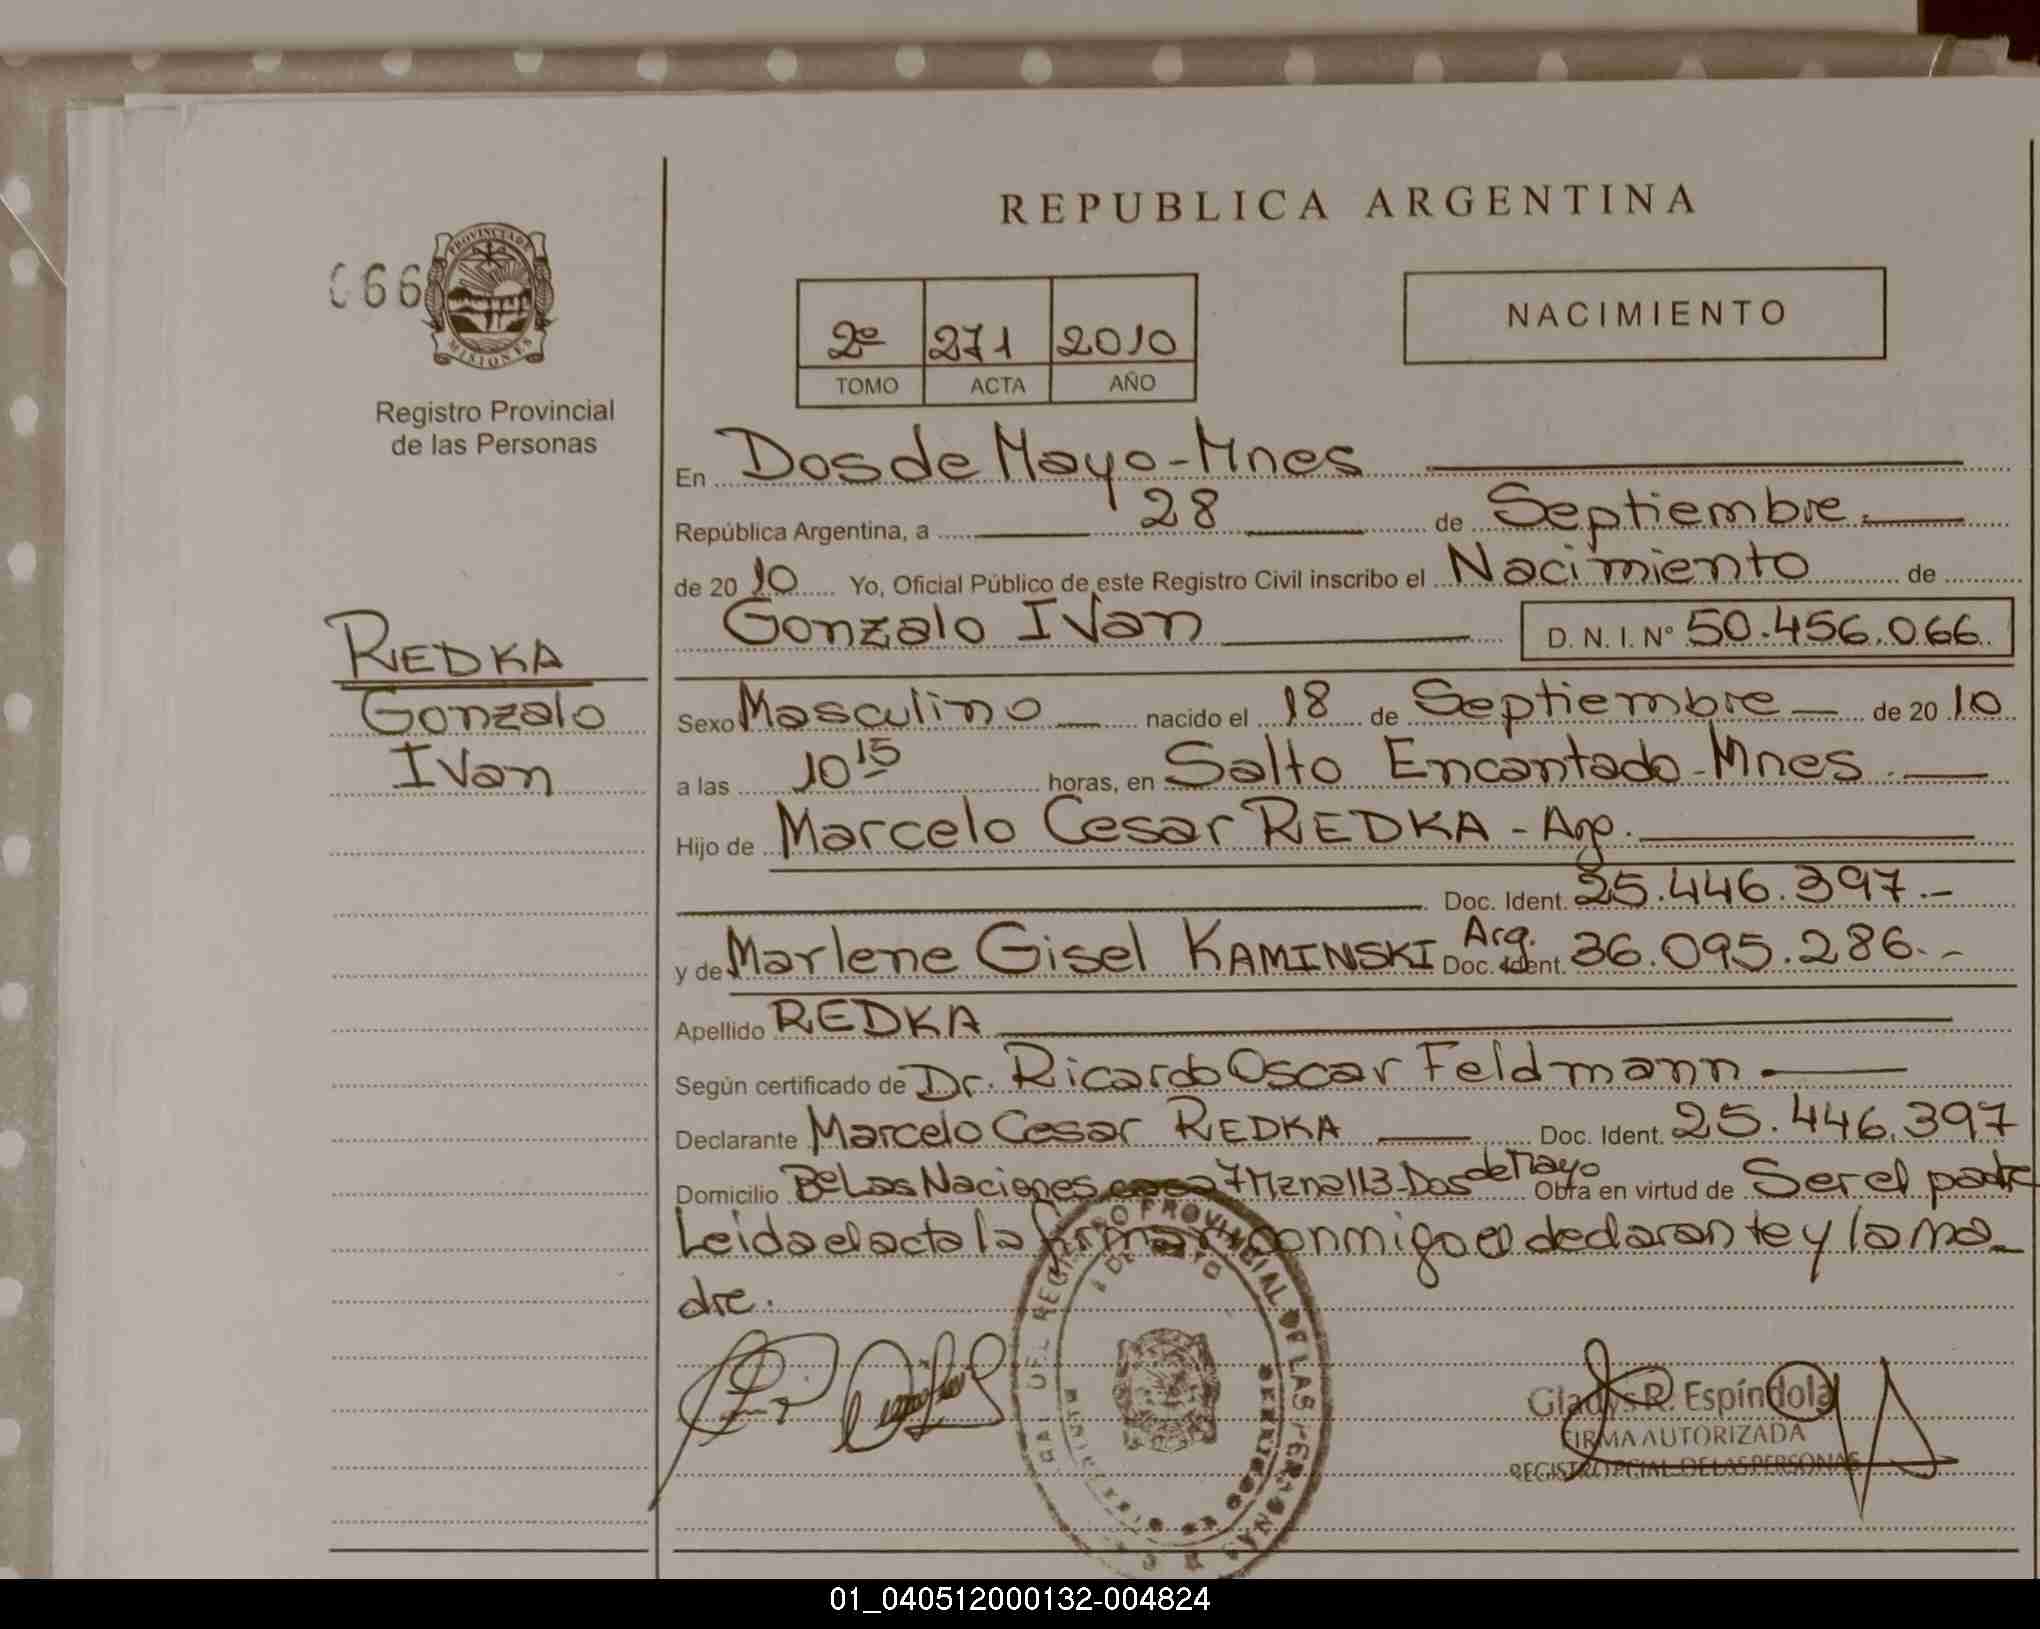 REPUBLICA ARGENTINA
066
PROVINCIA DE
MISIONES
Registro Provincial
de las Personas
2º 271 2010
TOMO ACTA AÑO
NACIMIENTO
En Dos de Mayo-Mnes
República Argentina, a 28 de Septiembre.
de 2010 Yo, Oficial Público de este Registro Civil inscribo el Nacimiento de
Gonzalo Ivan D. N. I. Nº 50.456.066
REDKA
Gonzalo
Ivan
Sexo Masculino nacido el 18 de Septiembre de 2010
a las 10 15 horas, en Salto Encantado-Mnes.
Hijo de Marcelo Cesar REDKA - Arg.
Doc. Ident. 25.446.397.-
y de Marlene Gisel KAMINSKI Arg. Doc. Ident. 36.095.286.-
Apellido REDKA
Según certificado de Dr. Ricardo Oscar Feldmann
Declarante Marcelo Cesar REDKA Doc. Ident. 25.446.397
Domicilio Bº Las Naciones casa 7 Mzna 113-Dos de Mayo Obra en virtud de Ser el padre
Leida el acta la firman conmigo el declarante y la ma-
dre.
REGISTRO PROVINCIAL DE LAS PERSONAS
Gladys R. Espíndola
FIRMA AUTORIZADA
REGISTRO PCIAL. DE LAS PERSONAS
01_040512000132-004824